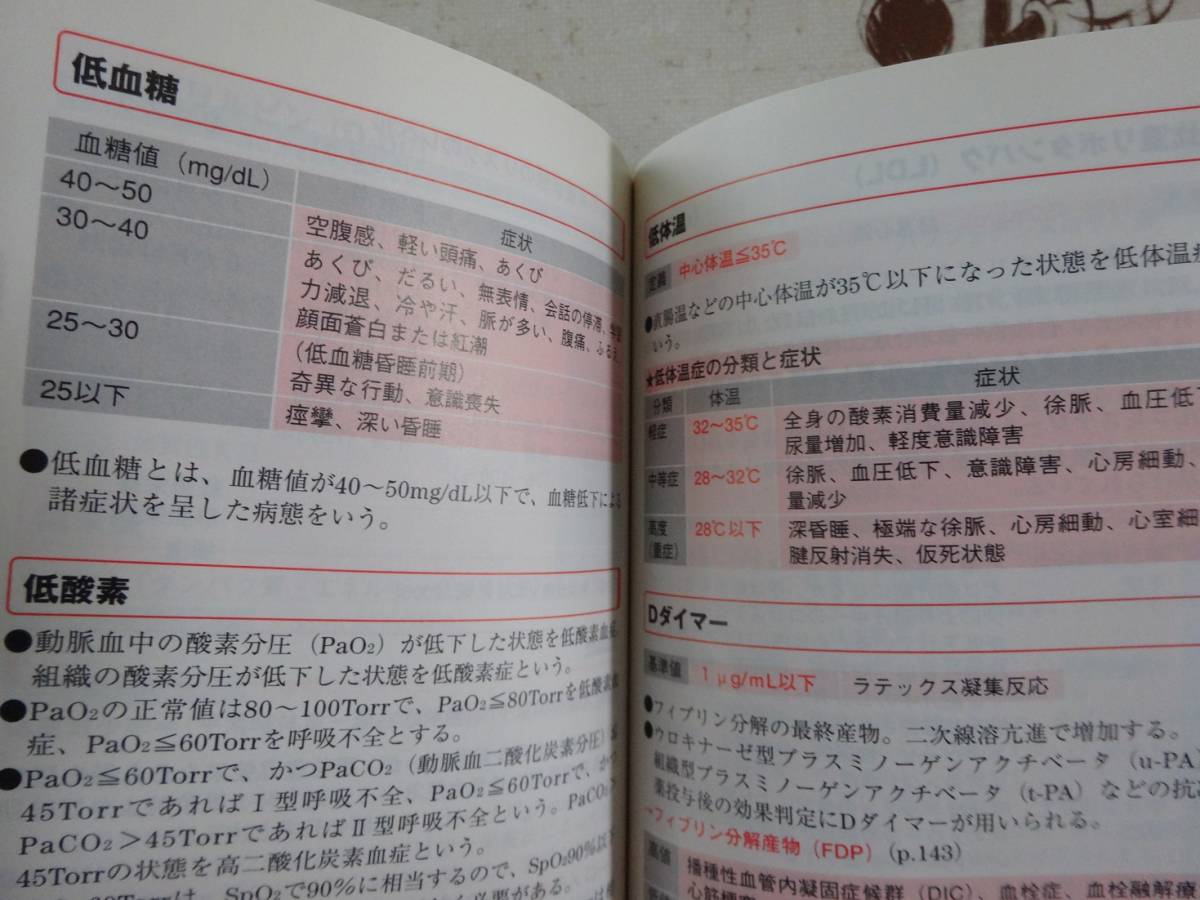 低血糖
血糖値（mg/dL） 症状
40～50 空腹感、軽い頭痛、あくび
30～40 あくび、だるい、無表情、会話の停滞、
力減退、冷や汗、脈が多い、腹痛、ふるえ、
顔面蒼白または紅潮
25～30 （低血糖昏睡前期）
奇異な行動、意識喪失
25以下 痙攣、深い昏睡
●低血糖とは、血糖値が40～50mg/dL以下で、血糖低下による
諸症状を呈した病態をいう。
低酸素
●動脈血中の酸素分圧（PaO₂）が低下した状態を低酸素血
組織の酸素分圧が低下した状態を低酸素症という。
●PaO₂の正常値は80～100Torrで、PaO₂≦80Torrを低酸素
症、PaO₂≦60Torrを呼吸不全とする。
●PaO₂≦60Torrで、かつPaCO₂（動脈血二酸化炭素分圧）
45TorrであればⅠ型呼吸不全、PaO₂≦60Torrで、かつ
PaCO₂＞45TorrであればⅡ型呼吸不全という。PaCO₂
45Torrの状態を高二酸化炭素血症という。
SpO₂で90％に相当するので、SpO₂90％以
必要がある。
低体温
定義 中心体温≦35℃
●直腸温などの中心体温が35℃以下になった状態を低体温症
いう。
★低体温症の分類と症状
分類 体温 症状
軽症 32～35℃ 全身の酸素消費量減少、徐脈、血圧低下
尿量増加、軽度意識障害
中等症 28～32℃ 徐脈、血圧低下、意識障害、心房細動、
量減少
高度 28℃以下 深昏睡、極端な徐脈、心房細動、心室細
（重症） 腱反射消失、仮死状態
Dダイマー
基準値 1μg/mL以下 ラテックス凝集反応
●フィブリン分解の最終産物。二次線溶亢進で増加する。
●ウロキナーゼ型プラスミノーゲンアクチベータ（u-PA）
組織型プラスミノーゲンアクチベータ（t-PA）などの抗
薬投与後の効果判定にDダイマーが用いられる。
→フィブリン分解産物（FDP）（p.143）
高値 播種性血管内凝固症候群（DIC）、血栓症、血栓融解療
心筋梗塞